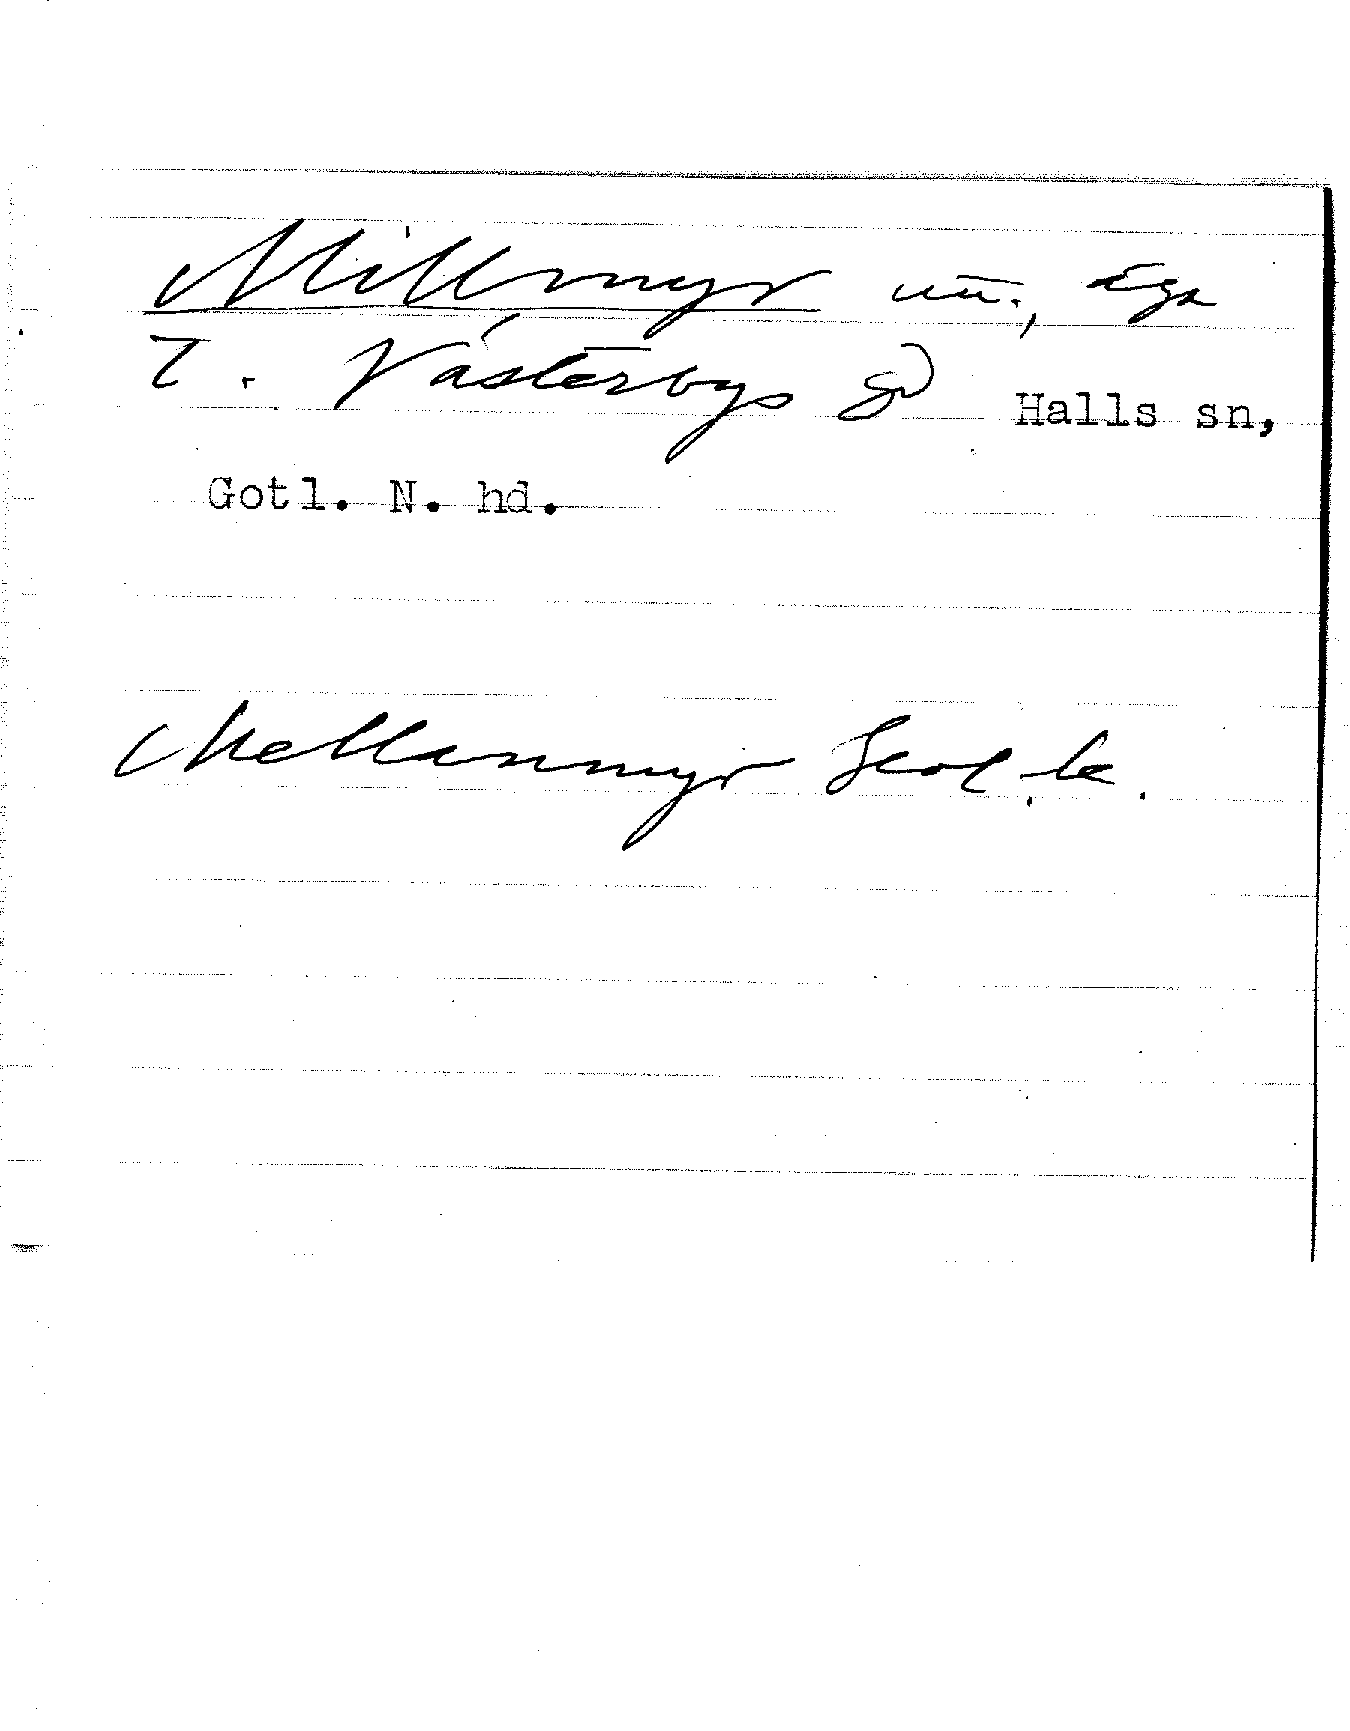 Millmyr un., äga
t. Västerbys gd Halls sn,
Gotl. N. hd.
Mellanmyr Geol. k.